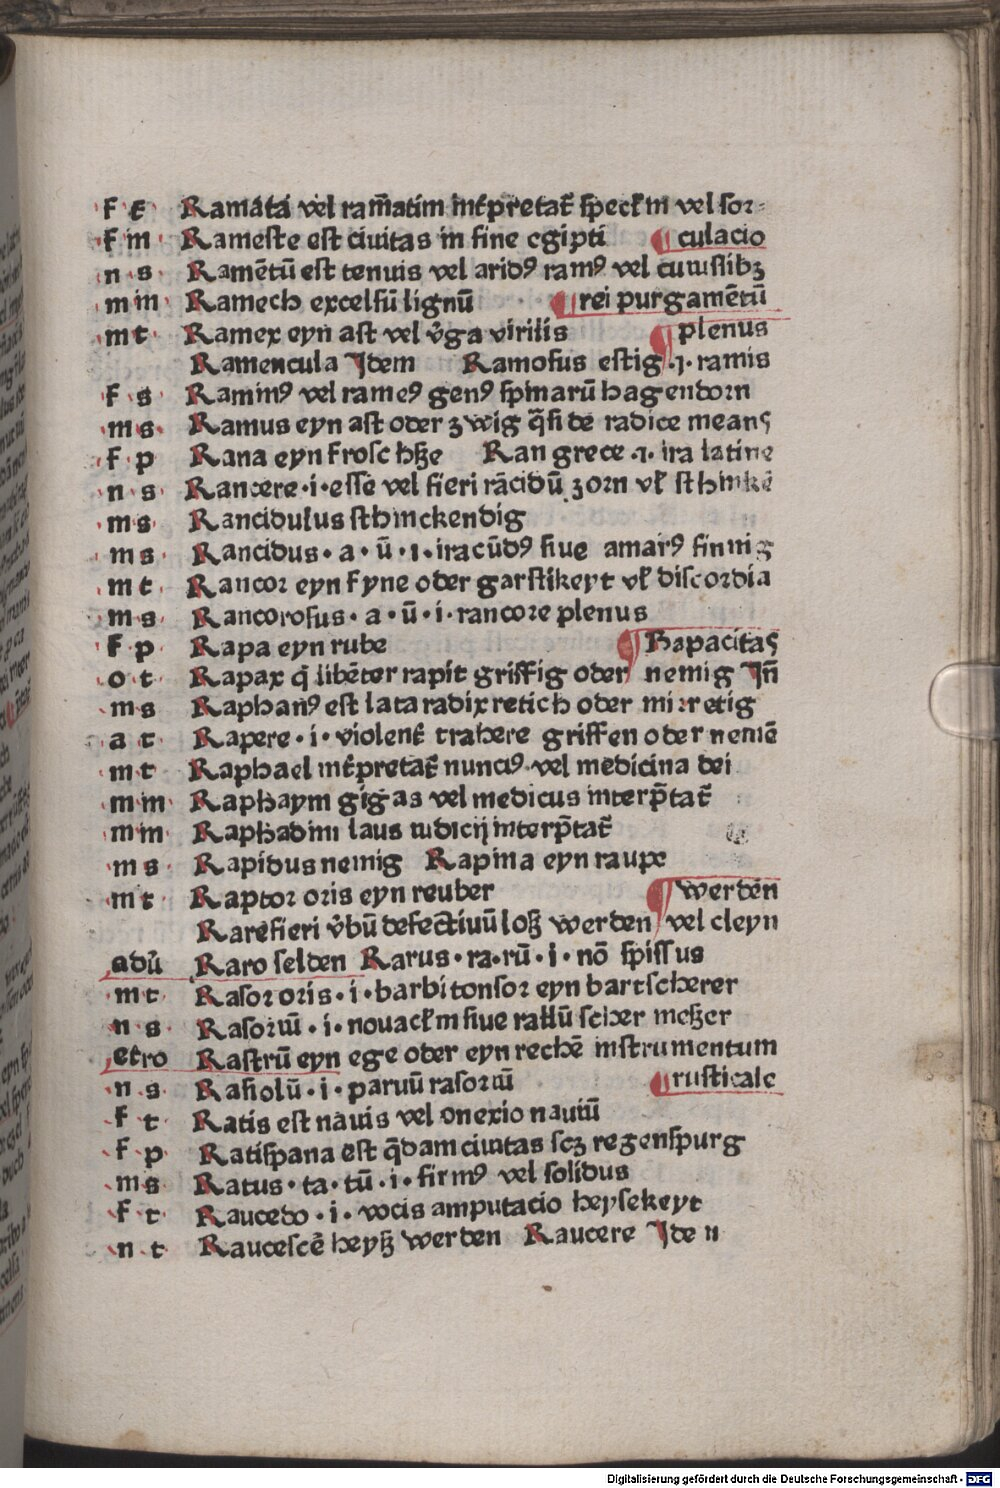 f t Ramata vel ram̄atim int̕pretat̕ speck̕m vel sor⸗
f m Rameste est ciuitas in fine egipti ¶ culacio
n s Ramētū est tenuis vel aridꝰ ramꝰ vel cuiuslibꝫ
m m Ramech excelsū lignū ¶ rei purgamētū
m t Ramex eyn ast vel v̕ga virilis ¶ plenus
Ramencula Jdem Ramosus estig .ı. ramis
f s Raminꝰ vel rameꝰ genꝰ spinarū hagendorn
m s Ramus eyn ast oder zwig q̄si de radice means
f p Rana eyn frosc hße Ran grece .ı. ira latine
n s Rancere·i·esse vel fieri rācidū zorn vł sthinkē
m s Rancidulus sthinckendig
m s Rancidus·a·ū·ı·iracūdꝰ siue amarꝰ finnig
m t Rancor eyn fyne oder garstikeyt vł discordia
m s Rancorosus·a·ū·i·rancore plenus
f p Rapa eyn rube ¶ Rapacitas
o t Rapax q̄ libēter rapit griffig oder nemig Jn̄
m s Raphanꝰ est lata radix retich oder mirretig
a t Rapere·i·violent̕ trahere griffen oder nemē
m t Raphael int̕pretat̕ nunciꝰ vel medicina dei
m m Raphaym gigas vel medicus interp̄tat̕
m m Raphadim laus iudicij interp̄tat̕
m s Rapidus nemig Rapina eyn raupe
m t Raptor oris eyn reuber ¶ werden
Rarefieri v̕bū defectiuū loß werden vel cleyn
adū Raro selden Rarus·ra·rū·i·nō spissus
m t Rasor oris·i·barbitonsor eyn bartscherer
n s Rasoriū·i·nouack̕m siue rallū scher meßer
etro Rastrū eyn ege oder eyn rechē instrumentum
n s Rasiolū·i·paruū rasoriū ¶ rusticale
f t Ratis est nauis vel onexio nauiū
f p Ratispana est q̄dam ciuitas scꝫ regenspurg
m s Ratus·ta·tū·i·firmꝰ vel solidus
f t Raucedo·i·vocis amputacio heysekeyt
n t Raucescē heyß werden Raucere Jden
Digitalisierung gefördert durch die Deutsche Forschungsgemeinschaft - DFG